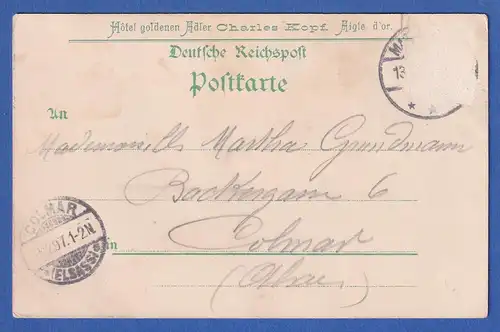 Hôtel goldenen Adler Charles Kopf. Aigle d'or.
Deutsche Reichspost
Postkarte
An
Mademoiselle Martha Grundmann
Backergasse 6
in Colmar
COLMAR
97. 1-2N
(ELSASS)